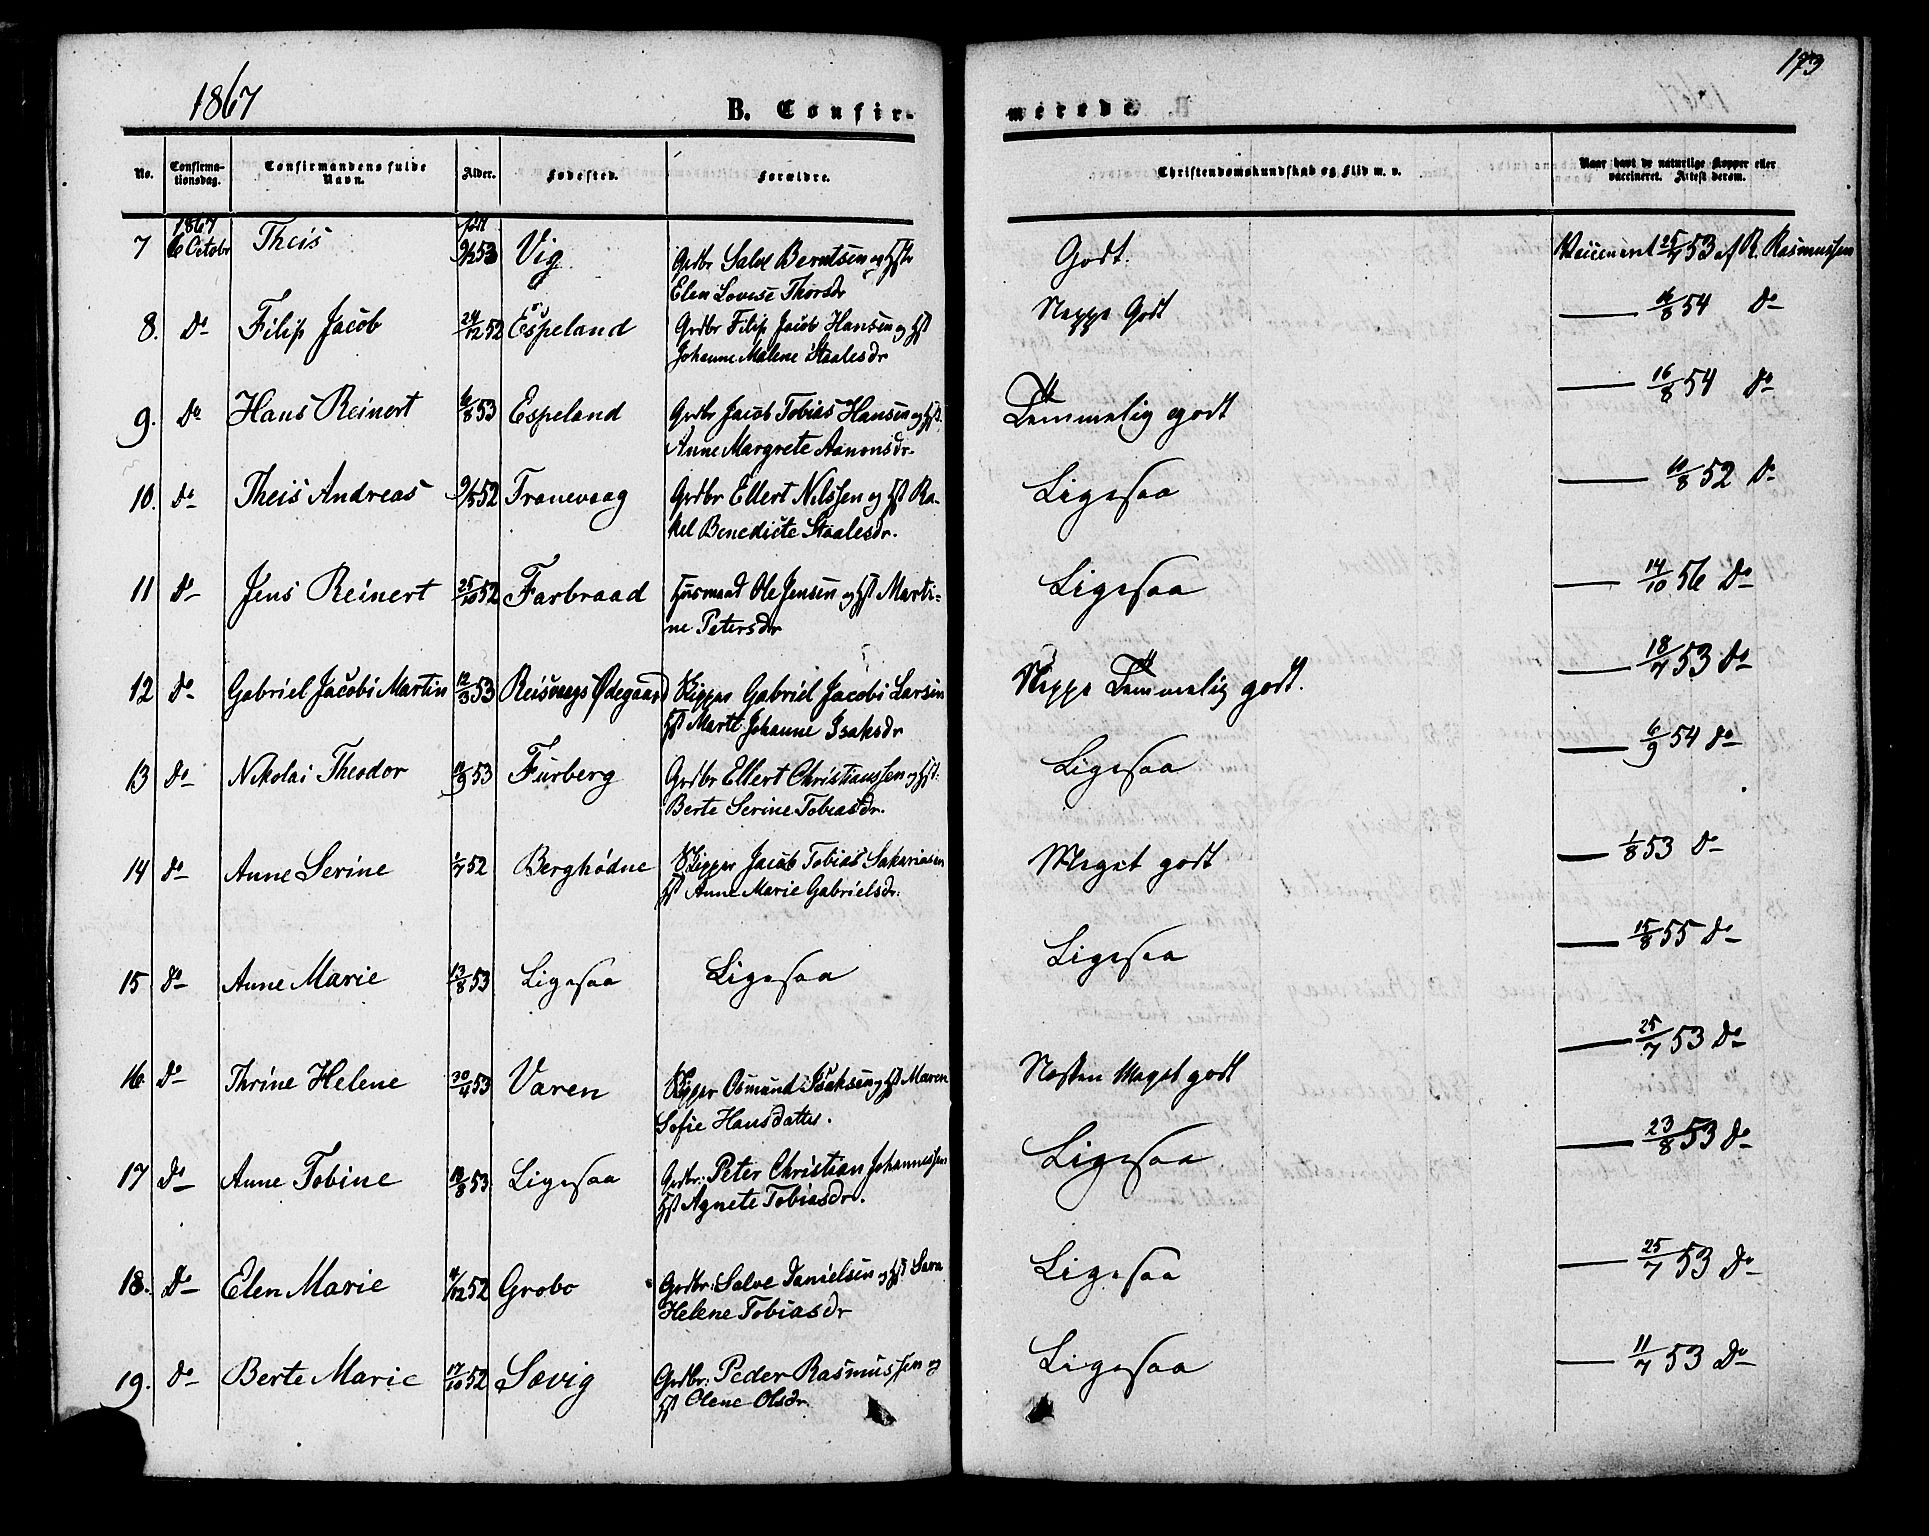 173
1867
B. Confirmerede.
No. Confirmationsdag. Confirmandens fulde Navn. Alder. Fødested. Forældre. Christendomskundskab og Flid m. v. Naar havt de naturlige Kopper eller vaccineret. Attest derom.
7 1867 6 Octobr Theis født 9/12 53 Vig Grdbr Salve Berntsen og Hst Godt. Vaccineret 25/7 53 af R. Rasmussen
Elen Lovise Thorsdr
8. Do Filip Jacob 29/12 52 Espeland Grdbr Filip Jacob Hansen og Hst Neppe Godt — 16/8 54 Do
Johanne Malene Staalesdr
9. Do Hans Reinert 6/8 53 Espeland Grdbr Jacob Tobias Hansen og Hst. Temmelig godt — 16/8 54 Do
Anne Margrete Aanonsdr.
10. Do Theis Andreas 9/5 52 Tranevaag Grdbr Ellert Nilssen og Hst Ra- Ligesaa — 10/8 52 Do
kel Benedicte Staalesdr.
11 Do Jens Reinert 25/10 52 Farbraad Huusmand Ole Jensen og Hst Marti- Ligesaa — 14/10 56 Do
ne Petersdr
12 Do Gabriel Jacobi Martin 12/3 53 Reisvaags Ødegaard Skipper Gabriel Jacobi Larsen Neppe Temmelig godt. — 18/7 53 Do
Hst Marte Johanne Isaksdr
13 Do Nikolai Theodor 53 Furberg Grdbr Ellert Christianssen og Hst: Ligesaa — 6/9 54 Do
Berte Serine Tobiasdr.
14 Do Anne Serine 1/7 52 Berghødne Skipper Jacob Tobias Sakariasen Meget godt — 1/8 53 Do
Hst Anne Marie Gabrielsdr.
15 Do Anne Marie 13/8 53 Ligesaa Ligesaa Ligesaa — 15/8 55 Do
16 Do Thrine Helene 30/4 53 Varen Skipper Osmund Isaksen og Hst Maren Næsten Meget godt — 25/7 53 Do
Sofie Hansdatter.
17 Do Anne Tobine 53 Ligesaa Grdbr: Peter Christian Johannessen Ligesaa — 23/8 53 Do
Hst Agnete Tobiasdr.
18. Do Elen Marie 52 Grobo Grdbr: Salve Danielsen og Hst Sara Ligesaa — 25/7 53 Do
Helene Tobiasdr
19. Do Berte Marie 17/10 52 Sævig Grdbr: Peder Rasmussen og Ligesaa — 11/7 53 Do
Hst Olene Olsdr.